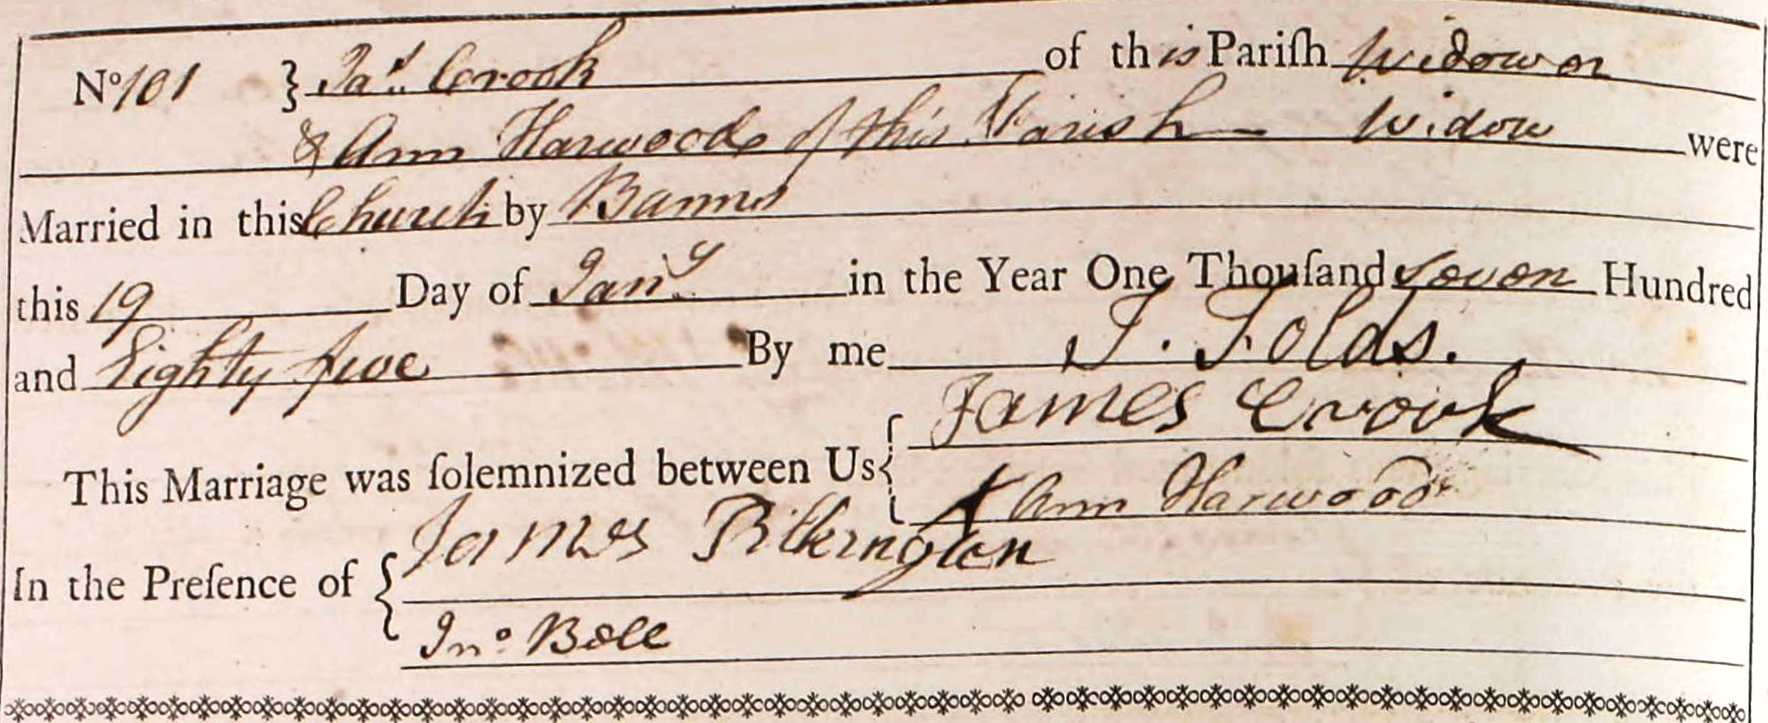 No 101 } Jas. Crook of this Pariſh Widower
& Ann Harwood of this Parish Widow were
Married in this Church by Banns
this 19 Day of Jany in the Year One Thouſand Seven Hundred
and Eighty five By me J. Folds.
This Marriage was ſolemnized between Us { James Crook
X Ann Harwood
In the Preſence of { James Pilkington
Jno. Bell